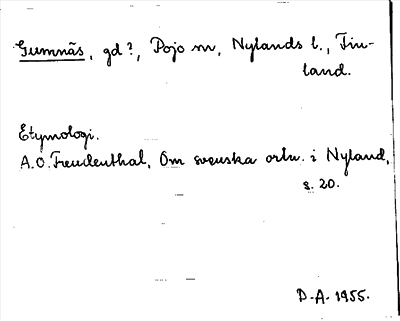 Gumnäs, gd?, Pojo sn, Nylands l., Fin-
land.
Etymologi.
A.O. Freudenthal, Om svenska ortn. i Nyland,
s. 20.
D-A- 1955.